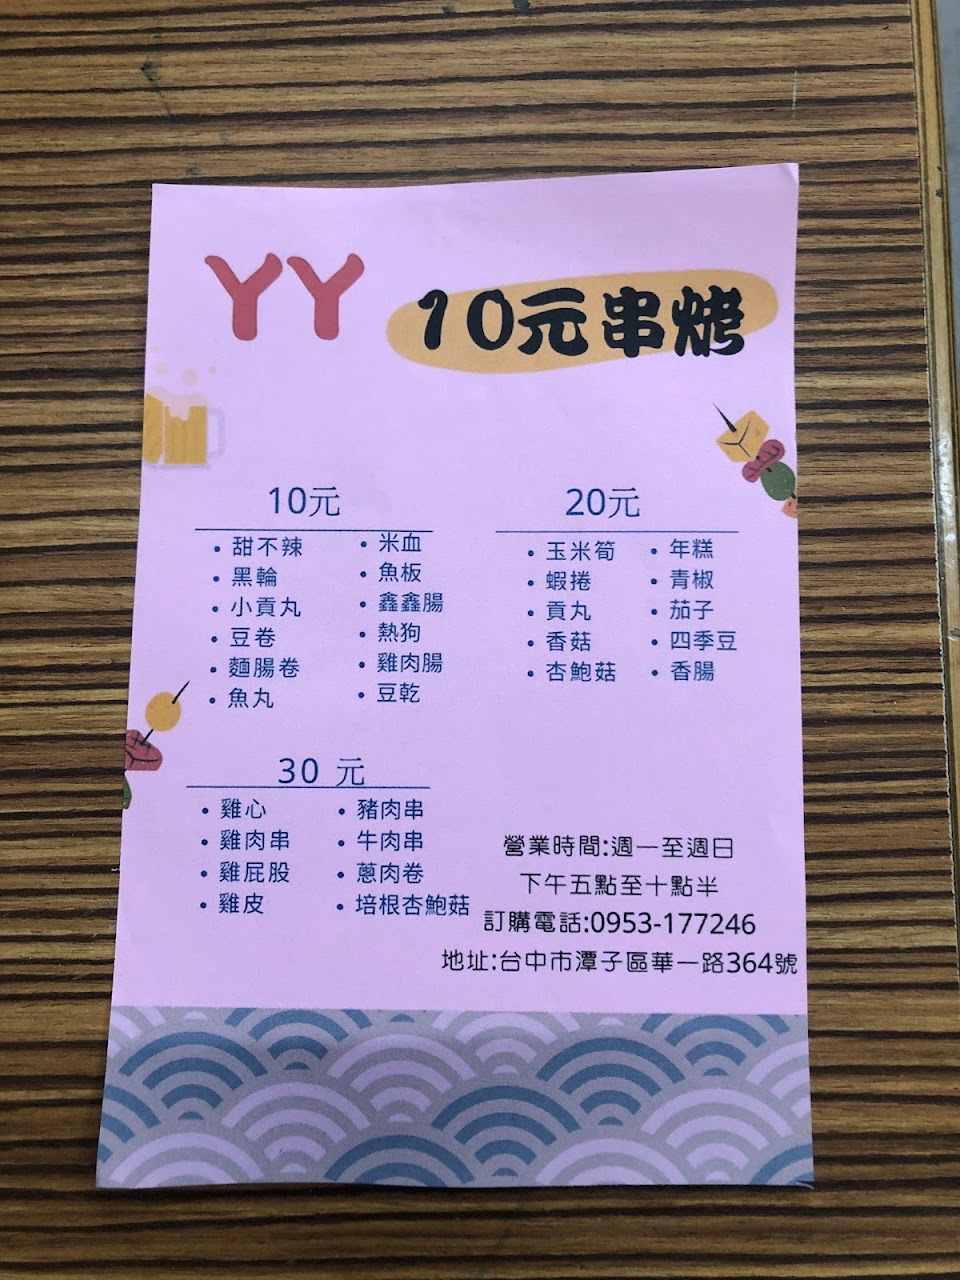 YY 10元串烤
10元
甜不辣
黑輪
小貢丸
豆卷
麵腸卷
魚丸
米血
魚板
鑫鑫腸
熱狗
雞肉腸
豆乾
20元
玉米筍
蝦捲
貢丸
香菇
杏鮑菇
年糕
青椒
茄子
四季豆
香腸
30 元
雞心
雞肉串
雞屁股
雞皮
豬肉串
牛肉串
蔥肉卷
培根杏鮑菇
營業時間:週一至週日
下午五點至十點半
訂購電話:0953-177246
地址:台中市潭子區華一路364號